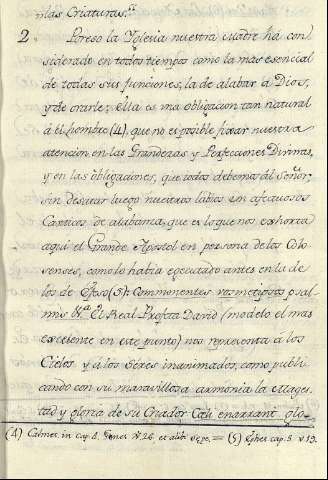 mas Criaturas.
2. Por eso la Yglesia nuestra Madre ha con
siderado en todos tiempos como la mas esencial
de todas sus funciones, la de alabar à Dios,
y de orarle; ella es una obligacion tan natural
à el hombre (4), que no es posible fixar nuestra
atencion en las Grandezas y Perfecciones Divinas,
y en las obligaciones, que todos debemos al Señor,
sin desatar luego nuestros labios en afectuosos
Canticos de alabanza, que es lo que nos exhorta
aqui el Grande Apostol en persona de los Colo-
senses, como lo habia egecutado antes en la de
los de Efeso (5): Commonentes vosmetipsos psal-
mis &.ª El Real Profeta David (modelo el mas
excelente en este punto) nos representa à los
Cielos y à los Séres inanimados, como publi
cando con su maravillosa armonia la Mages
tad y gloria de su Criador Cœli enarrant glo-
(4) Calmet. in cap. 4. Genes. v. 26. et alibi sepe. = (5) Ephes. cap. 5. v. 19.